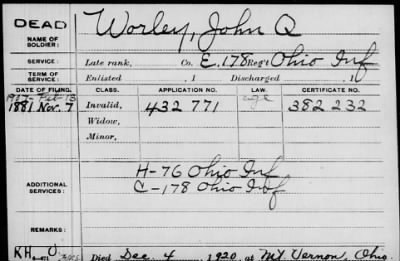 DEAD
NAME OF SOLDIER: Worley, John Q
SERVICE: Late rank, Co. E. 178 Reg't Ohio Inf
TERM OF SERVICE: Enlisted , 1 Discharged , 1
DATE OF FILING. CLASS. APPLICATION NO. LAW. CERTIFICATE NO.
1917- Feb-13 age
1881 Nov. 7 Invalid, 432 771 382 232
Widow,
Minor,
ADDITIONAL SERVICES: H-76 Ohio Inf
C-178 Ohio Inf
REMARKS:
Died Dec. 4, 1920, at Mt. Vernon, Ohio.